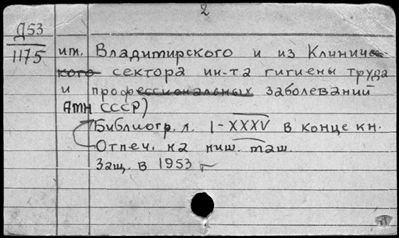 2
Д53
1175
им. Владимирского и из Клиниче-
ского сектора ин-та гигиены труда
и профессиональных заболеваний
АМН СССР)
Библиогр. л. I-XXXV в конце кн.
Отпеч. на пиш. маш.
Защ. в 1953 г.